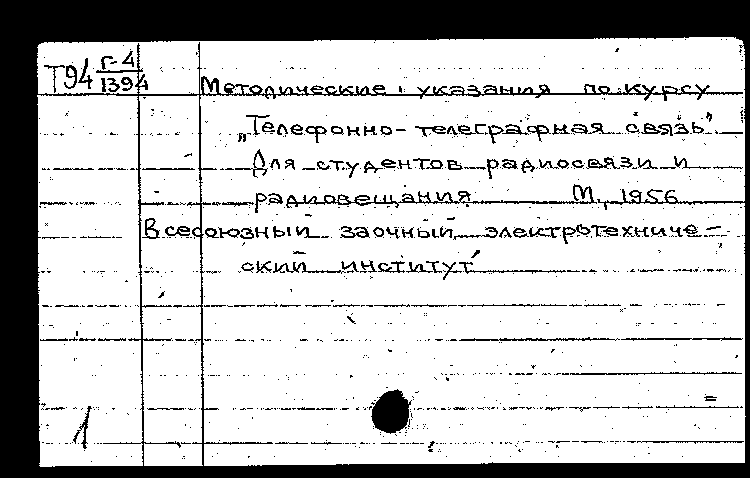 Т94 Г-4
1394
Методические указания по курсу
„Телефонно-телеграфная связь"
Для студентов радиосвязи и
радиовещания М., 1956
Всесоюзный заочный электротехниче-
ский институт
1